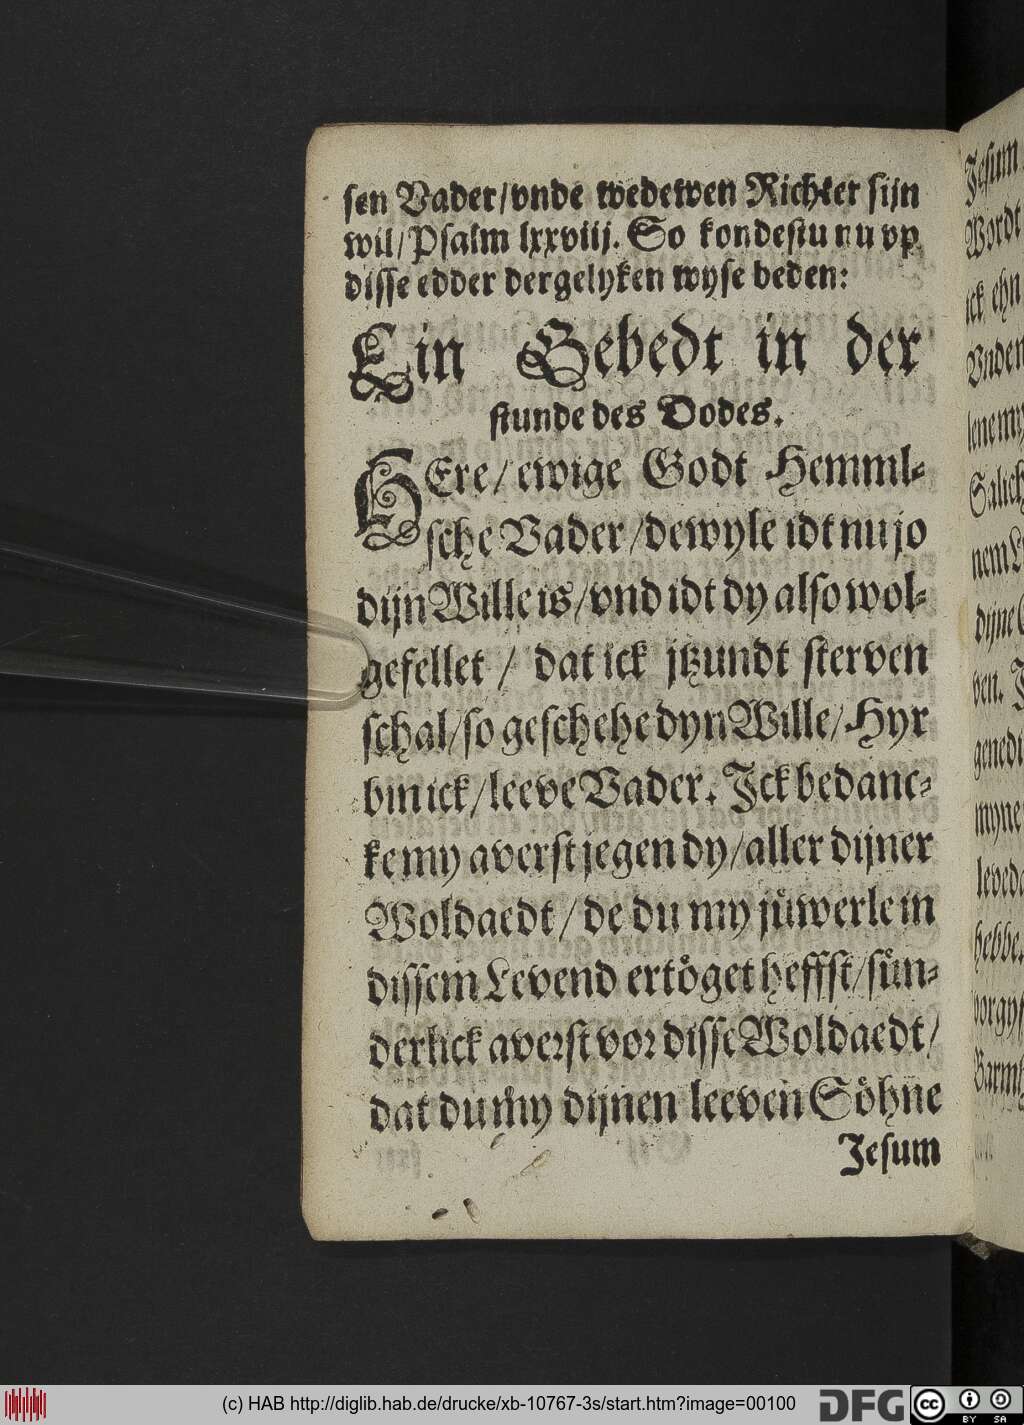 sen Vader/vnde wedewen Richter sijn
wil/Psalm lxxviij. So kondestu nu vp
disse edder dergelyken wyse beden:
Ein Gebedt in der
stunde des Dodes.
HEre/ewige Godt Hemml-
sche Vader/dewyle idt nu jo
dijn Wille is/vnd idt dy also wol-
gefellet/ dat ick jtzundt sterven
schal/so geschehe dyn Wille/Hyr
bin ick/leeve Vader. Jck bedanc-
ke my averst jegen dy/aller dijner
Woldaedt/de du my jüwerle in
dissem Levend ertöget heffst/sün-
derlick averst vor disse Woldaedt/
dat du my dijnen leeven Söhne
Jesum
Jesum
Wordt
ick ehn
vnden
lene my
Salich
nem L
dijne
ven. J
genedi
myne
leveda
hebbe.
vorgys
Barmh
(c) HAB http://diglib.hab.de/drucke/xb-10767-3s/start.htm?image=00100
DFG
cc BY SA